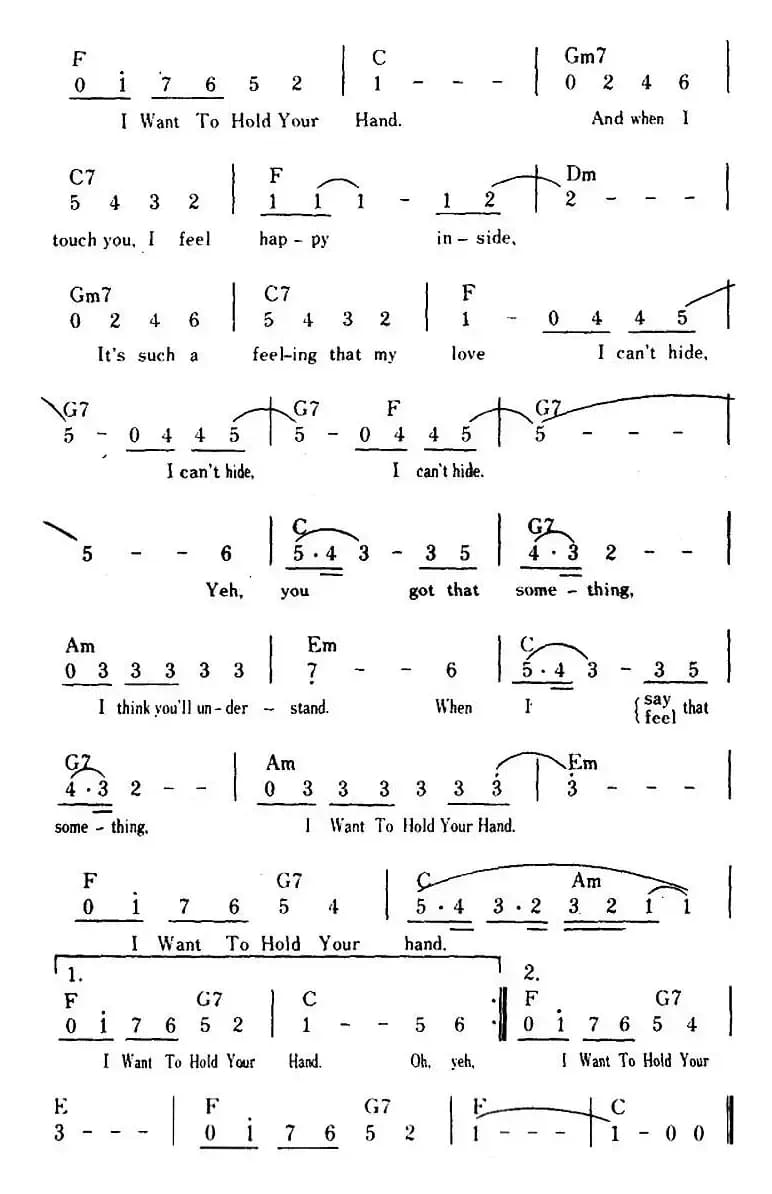 F C Gm7
0 1 7 6 5 2 | 1 - - - | 0 2 4 6 |
I Want To Hold Your Hand. And when I
C7 F Dm
5 4 3 2 | 1 1 1 - 1 2 | 2 - - - |
touch you, I feel hap - py in - side,
Gm7 C7 F
0 2 4 6 | 5 4 3 2 | 1 - 0 4 4 5 |
It's such a feel-ing that my love I can't hide,
G7 G7 F G7
5 - 0 4 4 5 | 5 - 0 4 4 5 | 5 - - - |
I can't hide, I can't hide.
C G7
5 - - 6 | 5 · 4 3 - 3 5 | 4 · 3 2 - - |
Yeh, you got that some - thing,
Am Em C
0 3 3 3 3 3 | 7 - - 6 | 5 · 4 3 - 3 5 |
I think you'll un - der - stand. When I { say, feel } that
G7 Am Em
4 · 3 2 - - | 0 3 3 3 3 3 3 | 3 - - - |
some - thing, I Want To Hold Your Hand.
F G7 C Am
0 1 7 6 5 4 | 5 · 4 3 · 2 3 2 1 1 |
I Want To Hold Your hand.
1. 2.
F G7 C F G7
0 1 7 6 5 2 | 1 - - 5 6 :|| 0 1 7 6 5 4 |
I Want To Hold Your Hand. Oh, yeh, I Want To Hold Your
E F G7 F C
3 - - - | 0 1 7 6 5 2 | 1 - - - | 1 - 0 0 ||